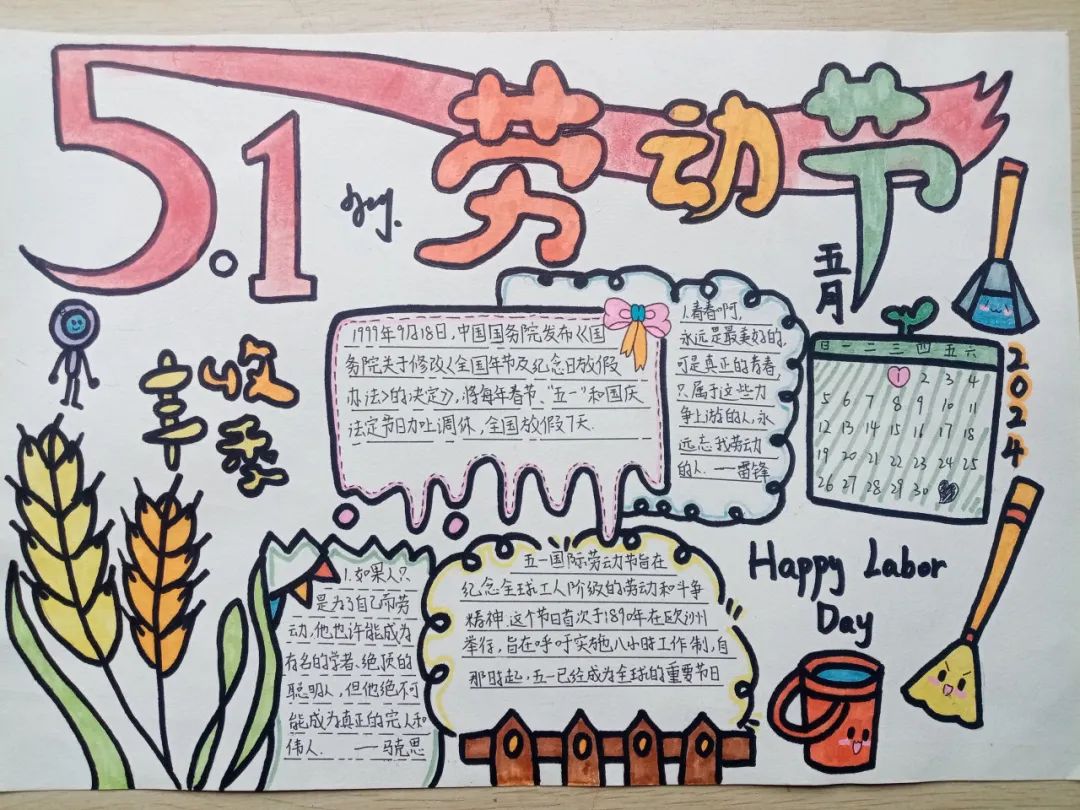 5.1
劳动节
五月
享受
1999年9月18日,中国国务院发布《国
务院关于修改〈全国年节及纪念日放假
办法〉的决定》,将每年春节、"五一"和国庆
法定节日加上调休,全国放假7天.
1.青春啊,
永远是最美好的,
可是真正的青春,
只属于这些力
争上游的人,永
远忘我劳动
的人. ——雷锋
日 一 二 三 四 五 六
1 2 3 4
5 6 7 8 9 10 11
12 13 14 15 16 17 18
19 20 21 22 23 24 25
26 27 28 29 30
2024
Happy Labor
Day
1.如果人只
是为了自己而劳
动,他也许能成为
有名的学者、绝顶的
聪明人,但他绝不可
能成为真正的完人和
伟人. ——马克思
五一国际劳动节旨在
纪念全球工人阶级的劳动和斗争
精神.这个节日首次于1890年在欧洲
举行,旨在呼吁实施八小时工作制,自
那时起,五一已经成为全球的重要节日